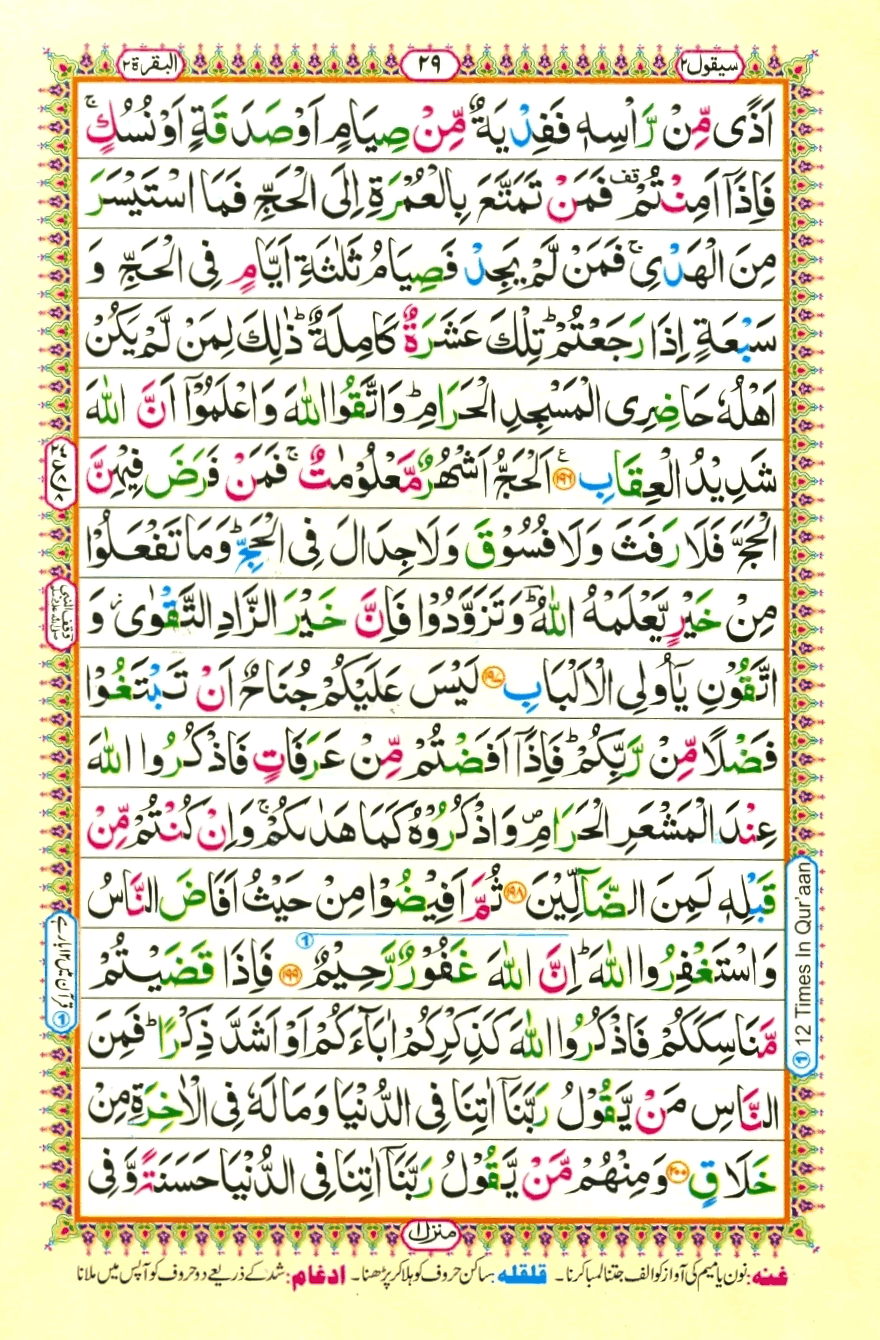 سيقول ٢
٢٩
البقرة ٢
اَذًى مِّنْ رَّاْسِهٖ فَفِدْيَةٌ مِّنْ صِيَامٍ اَوْ صَدَقَةٍ اَوْ نُسُكٍ ۚ
فَاِذَاۤ اَمِنْتُمْ ۥقف فَمَنْ تَمَتَّعَ بِالْعُمْرَةِ اِلَى الْحَجِّ فَمَا اسْتَيْسَرَ
مِنَ الْهَدْىِ ۚ فَمَنْ لَّمْ يَجِدْ فَصِيَامُ ثَلٰثَةِ اَيَّامٍ فِى الْحَجِّ وَ
سَبْعَةٍ اِذَا رَجَعْتُمْ ؕ تِلْكَ عَشَرَةٌ كَامِلَةٌ ؕ ذٰلِكَ لِمَنْ لَّمْ يَكُنْ
اَهْلُهٗ حَاضِرِى الْمَسْجِدِ الْحَرَامِ ؕ وَاتَّقُوا اللّٰهَ وَاعْلَمُوْۤا اَنَّ اللّٰهَ
شَدِيْدُ الْعِقَابِ ﴿۱۹۶﴾ اَلْحَجُّ اَشْهُرٌ مَّعْلُوْمٰتٌ ۚ فَمَنْ فَرَضَ فِيْهِنَّ
الْحَجَّ فَلَا رَفَثَ وَلَا فُسُوْقَ وَلَا جِدَالَ فِى الْحَجِّ ؕ وَمَا تَفْعَلُوْا
مِنْ خَيْرٍ يَّعْلَمْهُ اللّٰهُ ؕ وَتَزَوَّدُوْا فَاِنَّ خَيْرَ الزَّادِ التَّقْوٰى ۫ وَ
اتَّقُوْنِ يٰۤاُولِى الْاَلْبَابِ ﴿۱۹۷﴾ لَيْسَ عَلَيْكُمْ جُنَاحٌ اَنْ تَبْتَغُوْا
فَضْلًا مِّنْ رَّبِّكُمْ ؕ فَاِذَاۤ اَفَضْتُمْ مِّنْ عَرَفَاتٍ فَاذْكُرُوا اللّٰهَ
عِنْدَ الْمَشْعَرِ الْحَرَامِ ۪ وَاذْكُرُوْهُ كَمَا هَدٰىكُمْ ۚ وَاِنْ كُنْتُمْ مِّنْ
قَبْلِهٖ لَمِنَ الضَّآلِّيْنَ ﴿۱۹۸﴾ ثُمَّ اَفِيْضُوْا مِنْ حَيْثُ اَفَاضَ النَّاسُ
وَاسْتَغْفِرُوا اللّٰهَ ؕ اِنَّ اللّٰهَ غَفُوْرٌ رَّحِيْمٌ ﴿۱۹۹﴾ فَاِذَا قَضَيْتُمْ
مَّنَاسِكَكُمْ فَاذْكُرُوا اللّٰهَ كَذِكْرِكُمْ اٰبَآءَكُمْ اَوْ اَشَدَّ ذِكْرًا ؕ فَمِنَ
النَّاسِ مَنْ يَّقُوْلُ رَبَّنَاۤ اٰتِنَا فِى الدُّنْيَا وَمَا لَهٗ فِى الْاٰخِرَةِ مِنْ
خَلَاقٍ ﴿۲۰۰﴾ وَمِنْهُمْ مَّنْ يَّقُوْلُ رَبَّنَاۤ اٰتِنَا فِى الدُّنْيَا حَسَنَةً وَّفِى
① 12 Times In Qur'aan
① قرآن میں ۱۲ بار ہے
منزل ١
غنه: نون یا میم کی آواز کو الف جتنا لمبا کرنا۔ قلقله: ساکن حروف کو ہلا کر پڑھنا۔ ادغام: شد کے ذریعے دو حروف کو آپس میں ملانا